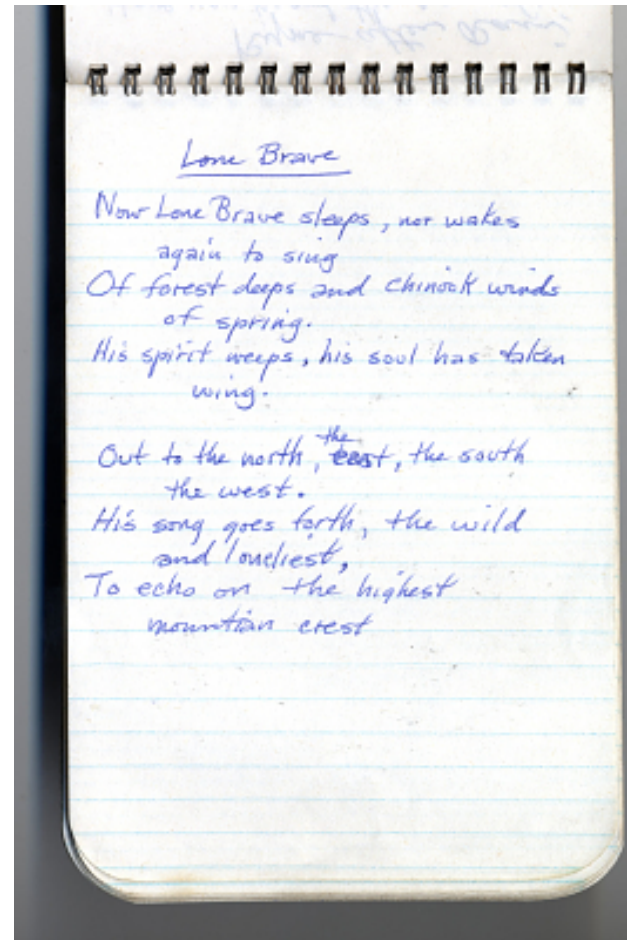 Lone Brave
Now Lone Brave sleeps, nor wakes
again to sing
Of forest deeps and chinook winds
of spring.
His spirit weeps, his soul has taken
wing.
Out to the north, the east, the south
the west.
His song goes forth, the wild
and loneliest,
To echo on the highest
mountian crest